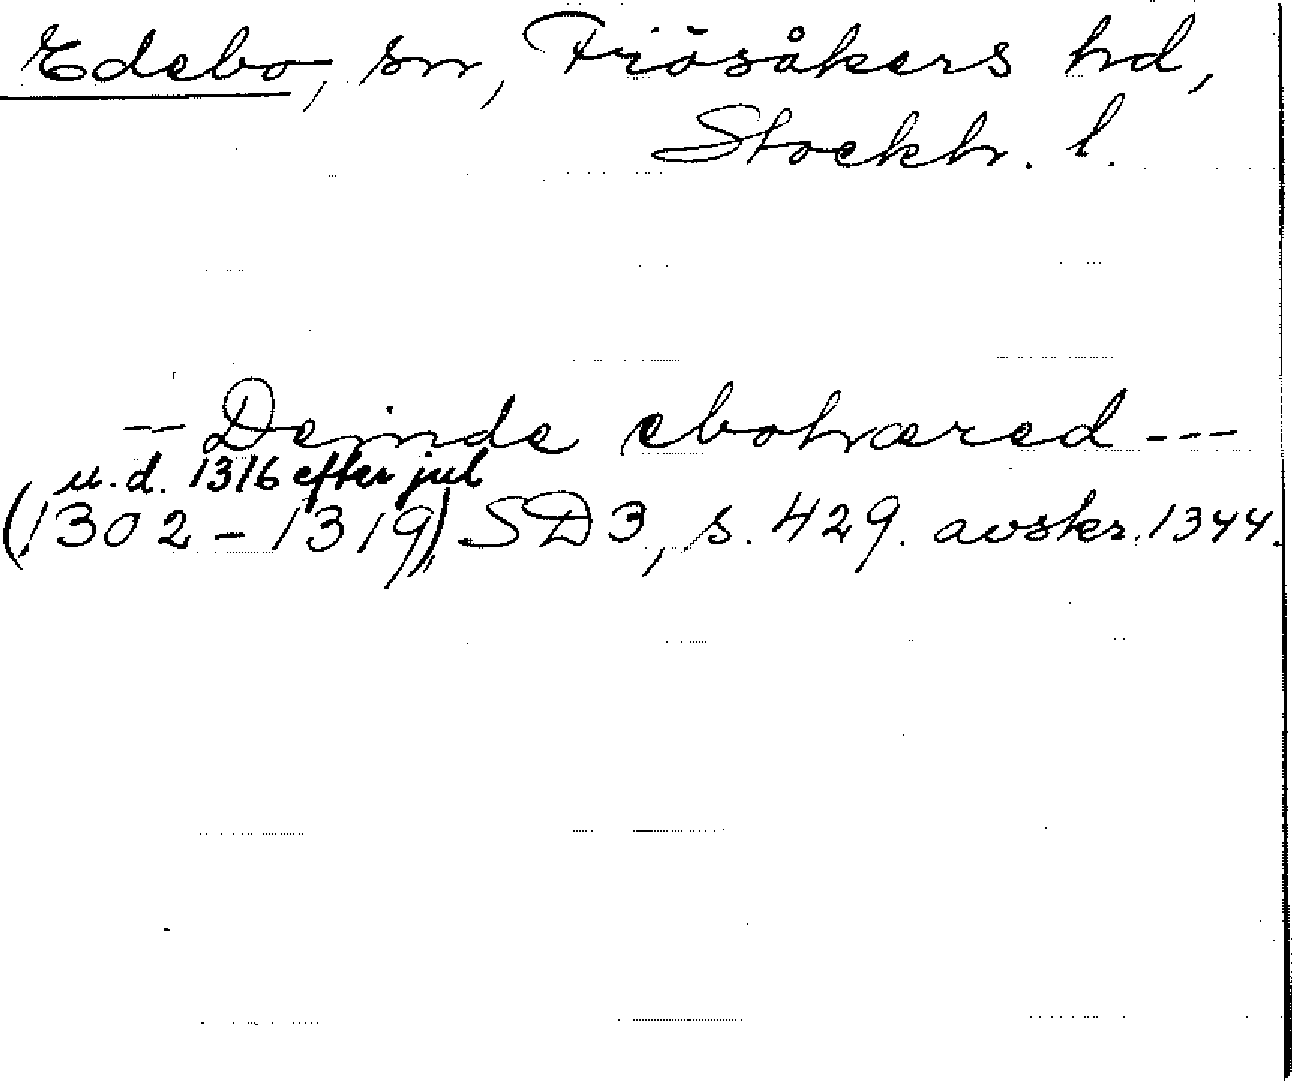 Edebo, sn, Frösåkers hd,
Stockh. l.
-- Deinde ebohæred ---
u.d. 1316 efter jul
(1302-1319) SD 3, s. 429. avskr. 1344.